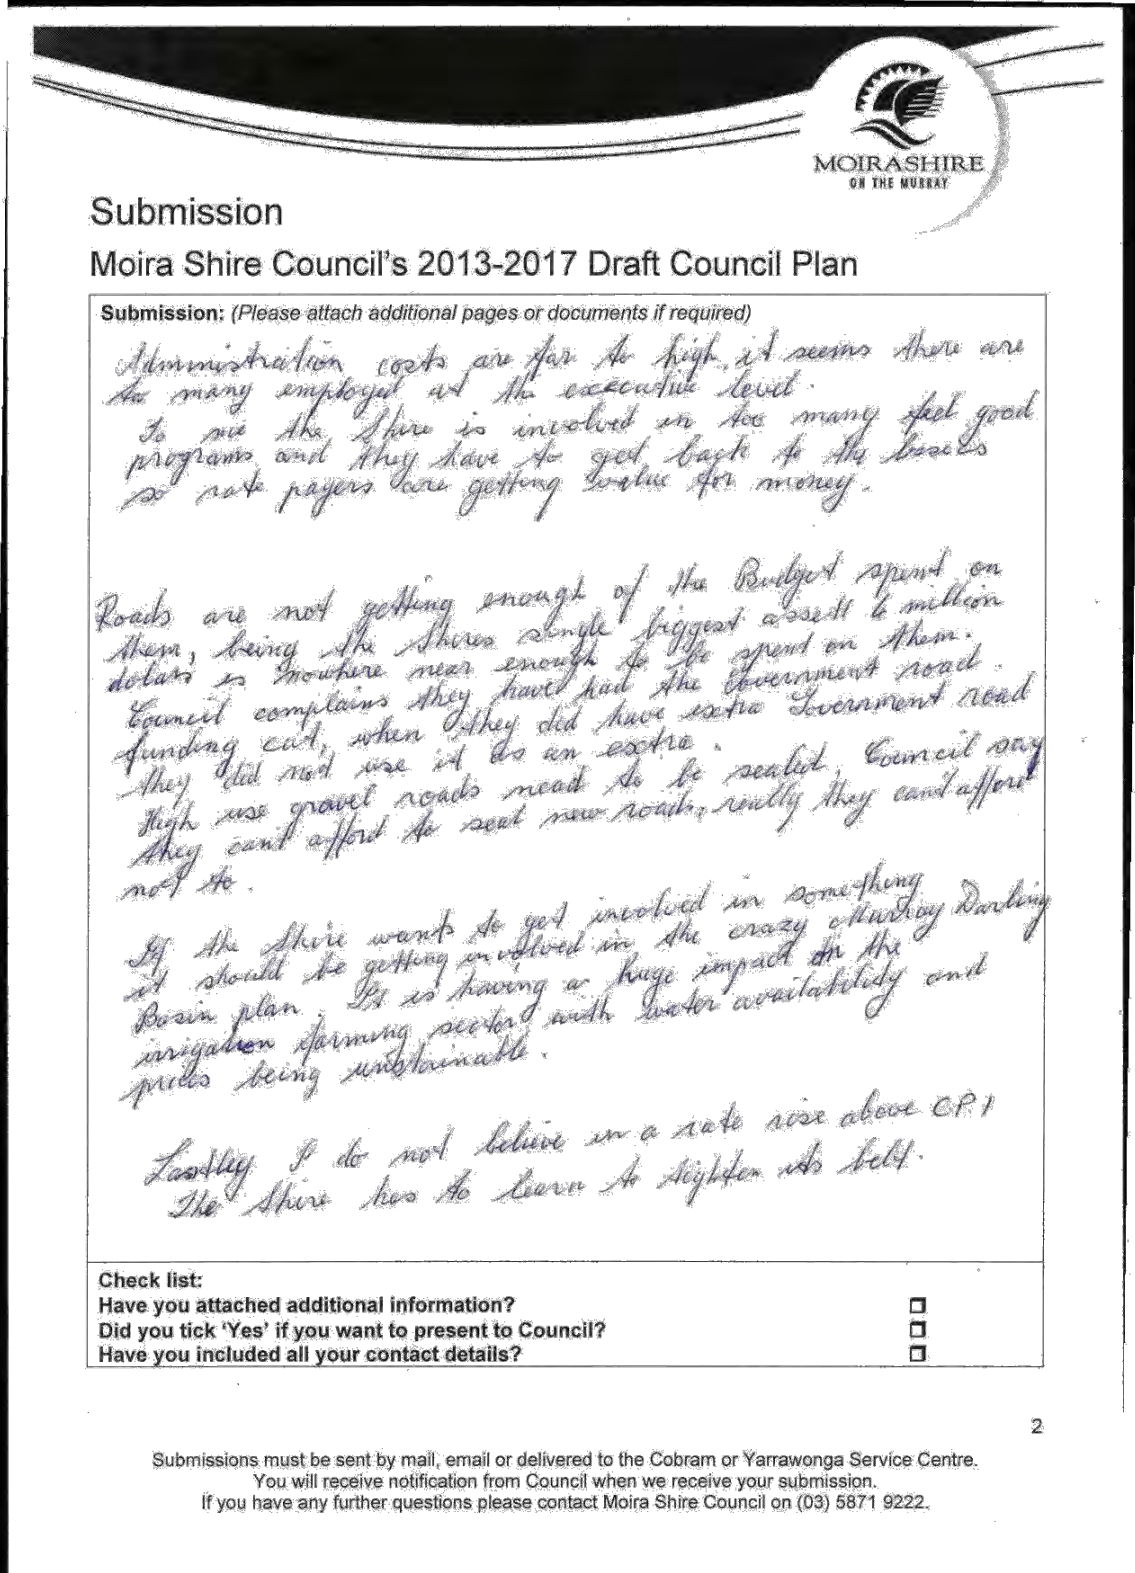 MOIRA SHIRE
ON THE MURRAY
Submission
Moira Shire Council's 2013-2017 Draft Council Plan
Submission: (Please attach additional pages or documents if required)
Administration costs are far to high, it seems there are
to many employed at the executive level.
To me the Shire is involved in too many feel good
programs and they have to get back to the basics
so rate payers are getting value for money.
Roads are not getting enough of the Budget spent on
them, being the Shires single biggest assett 6 million
dolars is nowhere near enough to be spent on them.
Council complains they have had the Government road
funding cut, when they did have extra Government road
they did not use it as an extra.
High use gravel roads need to be sealed, Council say
they cant afford to seal new roads, really they cant afford
not to.
If the Shire wants to get involved in something
it should be getting involved in the crazy Murray Darling
Basin plan. It is having a huge impact on the
irrigation farming sector with water availability and
prices being unstainable.
Lastley I do not believe in a rate rise above C.P.I
The Shire has to learn to tighten its belt.
Check list:
Have you attached additional information?
Did you tick 'Yes' if you want to present to Council?
Have you included all your contact details?
2
Submissions must be sent by mail, email or delivered to the Cobram or Yarrawonga Service Centre.
You will receive notification from Council when we receive your submission.
If you have any further questions please contact Moira Shire Council on (03) 5871 9222.